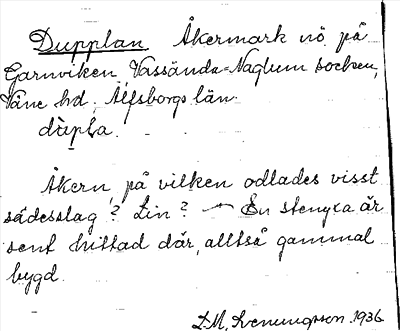 Dupplan Åkermark nö på
Garnviken, Vassända-Naglum socken,
Väne hd. Älfsborgs län.
dùpḷa.
Åkern på vilken odlades visst
sädesslag? Lin? — En stenyxa är
sent hittad där, alltså gammal
bygd.
D.M. Svenungsson 1936